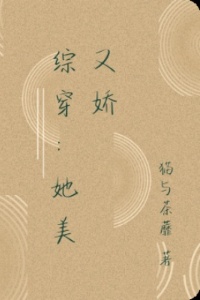 综穿：她美
又娇
猫与荼蘼 著